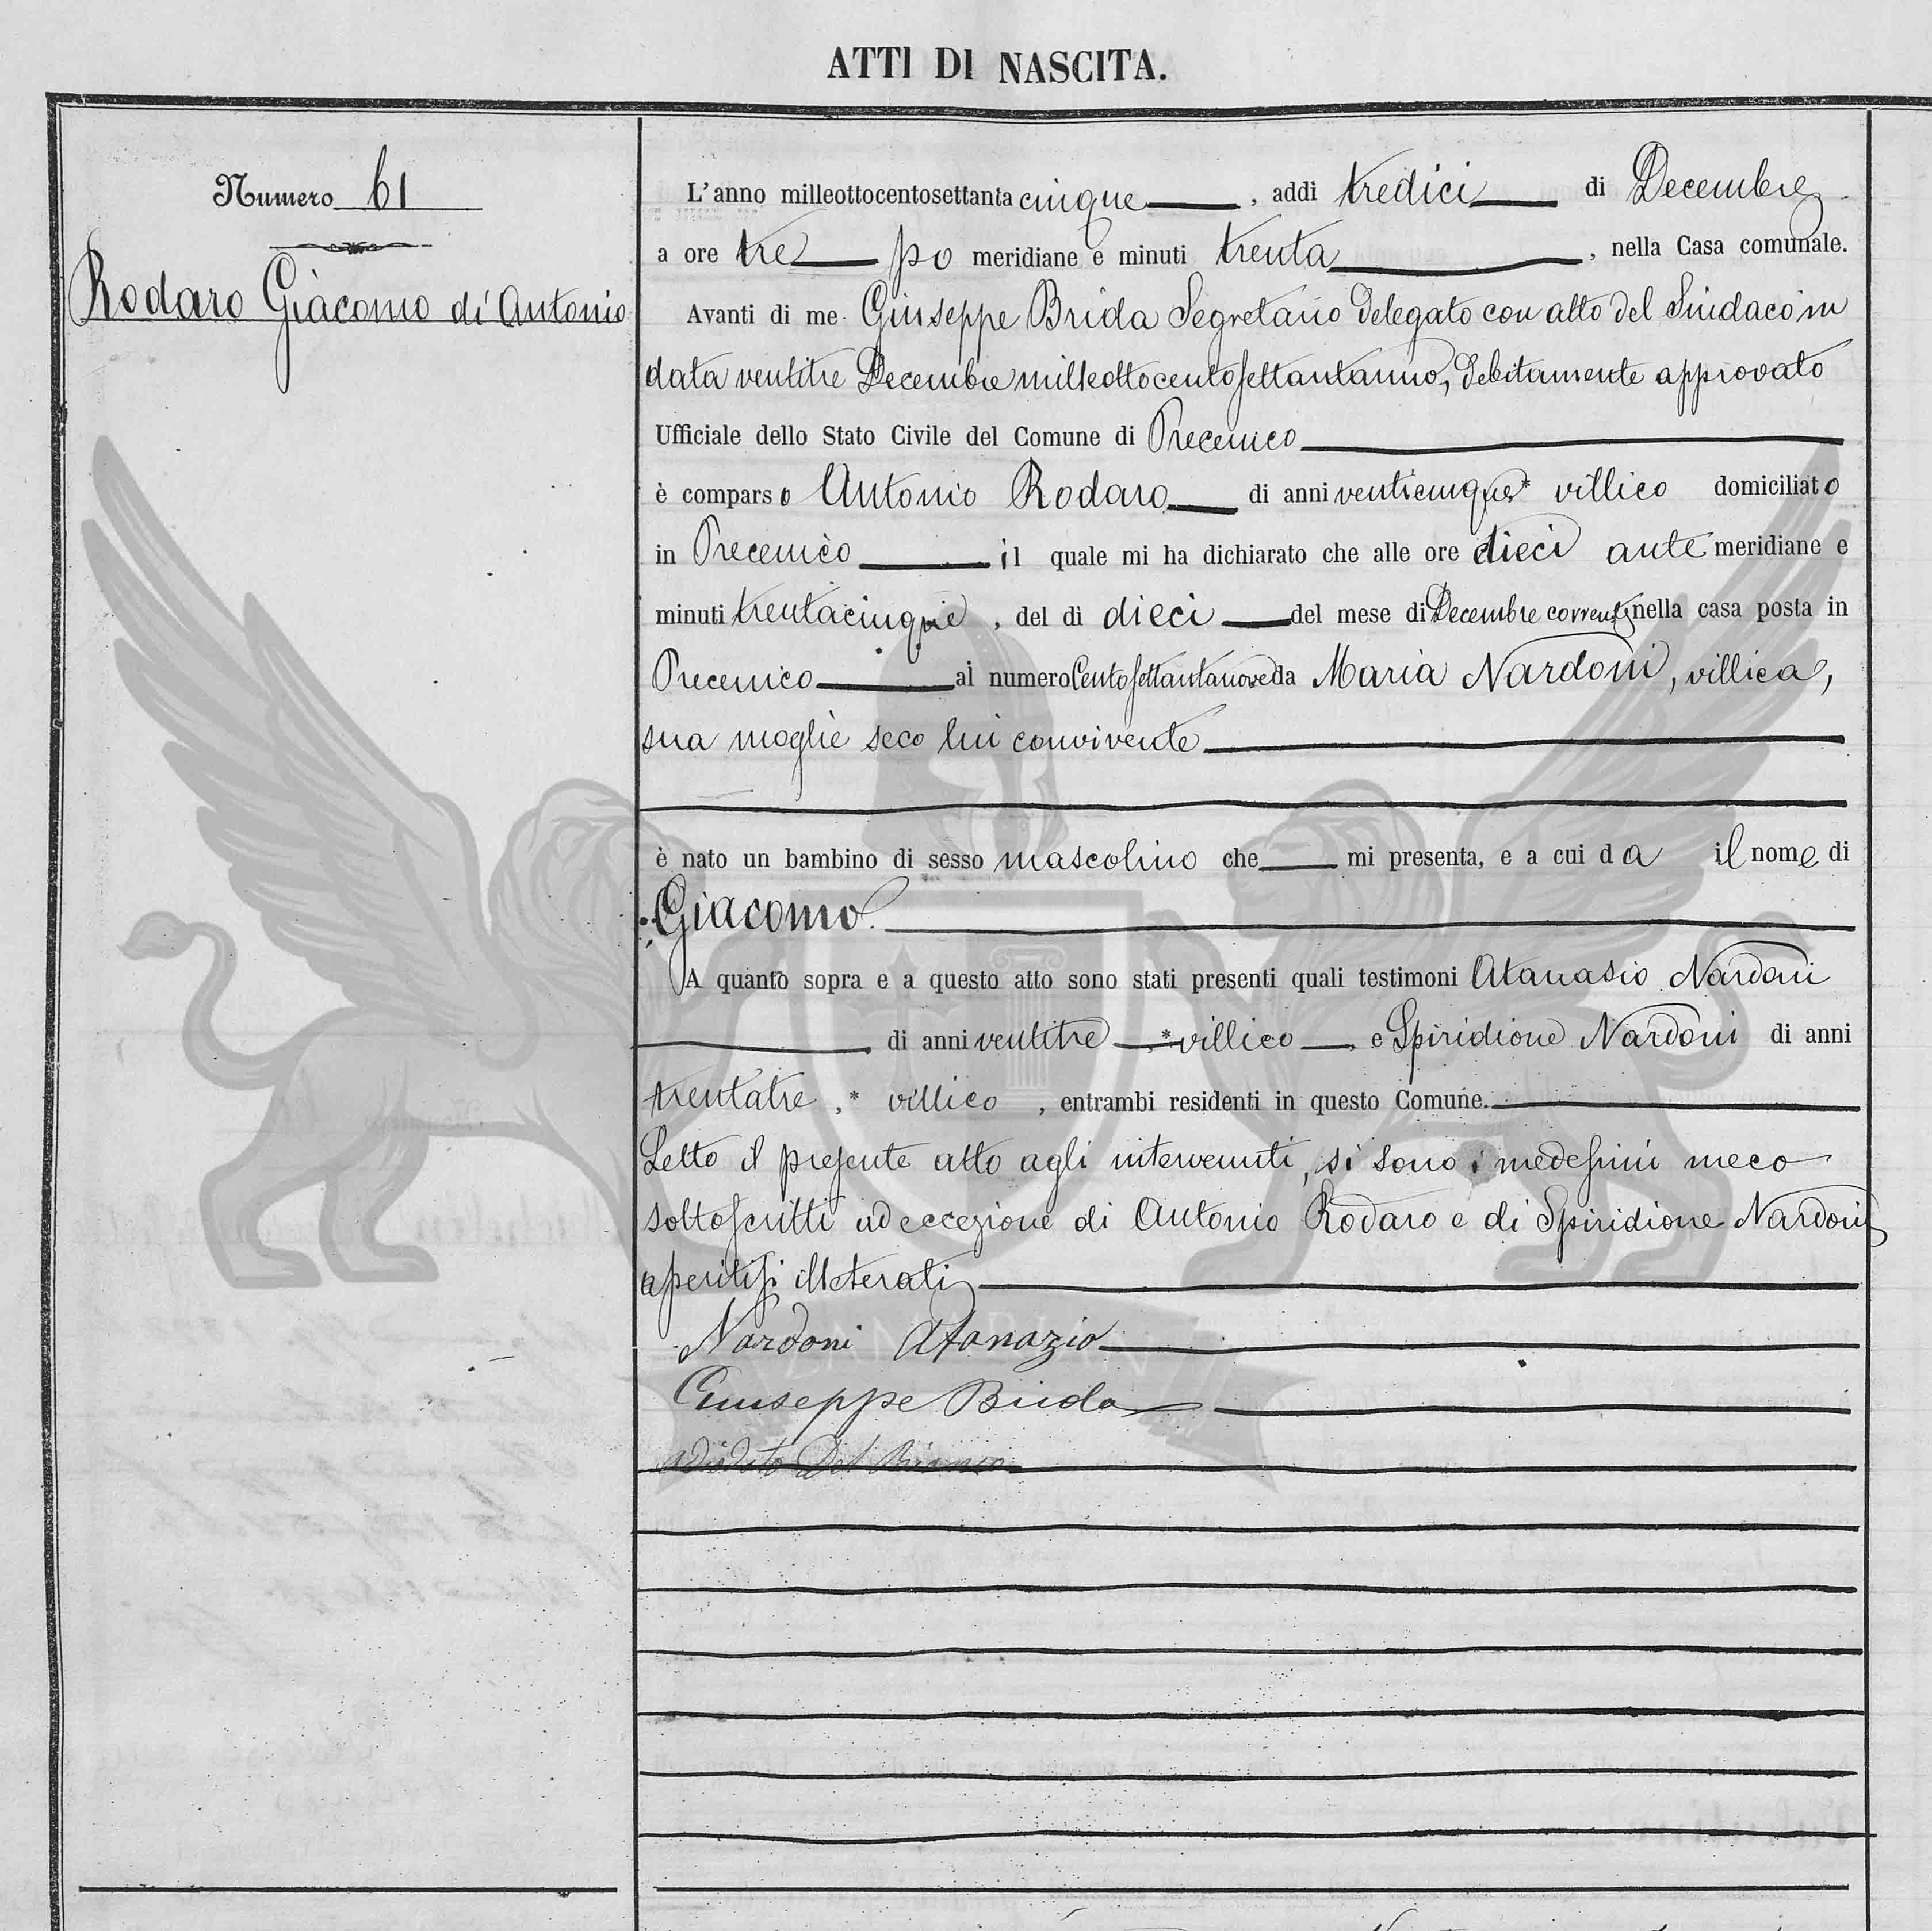 ATTI DI NASCITA.
Numero 61
Rodaro Giacomo di Antonio
L'anno milleottocentosettanta cinque, addi tredici di Decembre
a ore tre po meridiane e minuti trenta, nella Casa comunale.
Avanti di me Giuseppe Brida Segretario delegato con atto del Sindaco in
data ventitre Decembre milleottocentosettantanno, debitamente approvato
Ufficiale dello Stato Civile del Comune di Precenico
è comparso Antonio Rodaro di anni venticinque* villico domiciliato
in Precenico il quale mi ha dichiarato che alle ore dieci ante meridiane e
minuti trentacinque, del dì dieci del mese di Decembre corrente nella casa posta in
Precenico al numero Centosettantanove da Maria Nardoni, villica,
sua moglie seco lui convivente
è nato un bambino di sesso mascolino che mi presenta, e a cui da il nome di
Giacomo.
A quanto sopra e a questo atto sono stati presenti quali testimoni Atanasio Nardoni
di anni ventitre, *villico, e Spiridione Nardoni di anni
trentatre,* villico, entrambi residenti in questo Comune.
Letto il presente atto agli intervenuti, si sono i medesimi meco
sottoscritti ad eccezione di Antonio Rodaro e di Spiridione Nardoni
asseritisi illeterati
Nardoni Atanazio
Giuseppe Brida